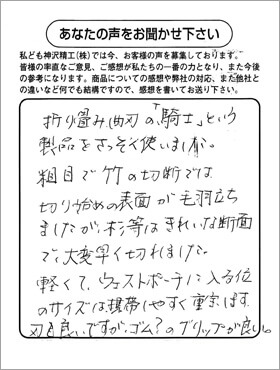 あなたの声をお聞かせ下さい
私ども神沢精工(株)では今、お客様の声を募集しております。
皆様の率直なご意見、ご感想が私たちの一番の力となり、また今後
の参考になります。商品についての感想や弊社の対応、また他社と
の違いなど何でも結構ですので、感想を書いてお送り下さい。
折り畳み曲刃の「騎士」という
製品をさっそく使いました。
粗目で竹の切断では
切り始めの表面が毛羽立ち
ましたが、杉等はきれいな断面
で、大変早く切れました。
軽くて、ウェストポーチに入る位
のサイズは携帯しやすく重宝します。
刃も良いですが、ゴム?のグリップが良い。